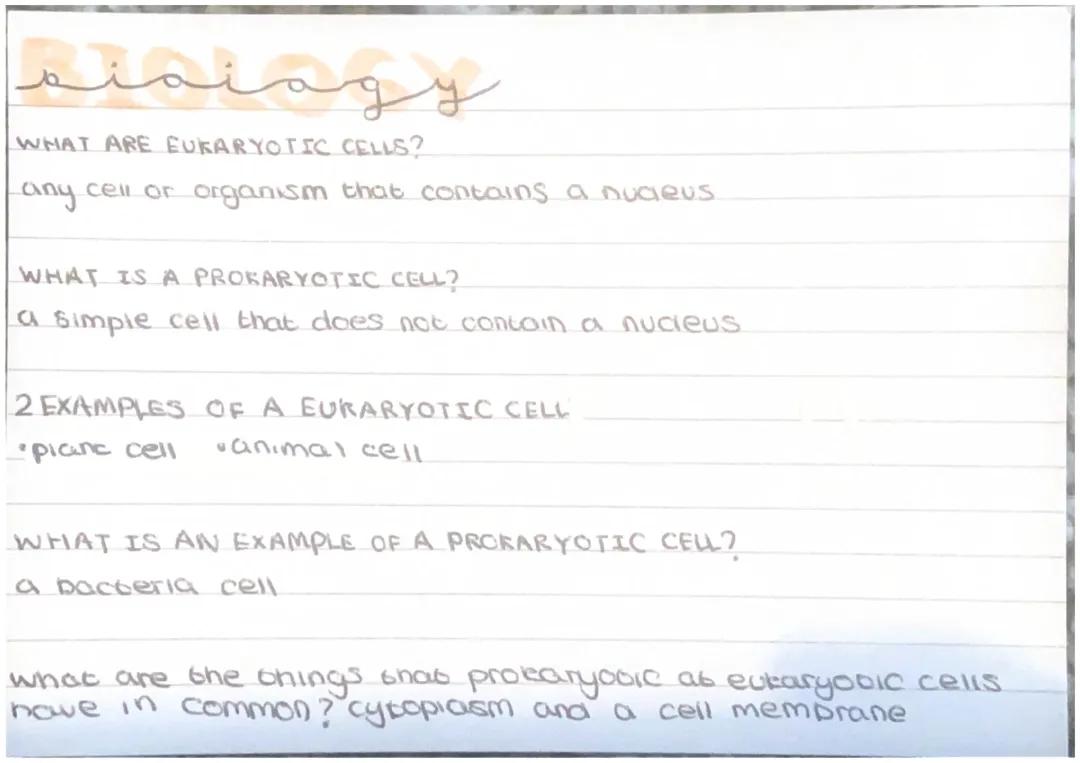 BIOLOGY
biology
WHAT ARE EUKARYOTIC CELLS?
any cell or organism that contains a nucleus
WHAT IS A PROKARYOTIC CELL?
a simple cell that does not contain a nucleus
2 EXAMPLES OF A EUKARYOTIC CELL
•plant cell •animal cell
WHAT IS AN EXAMPLE OF A PROKARYOTIC CELL?
a bacteria cell
what are the things that prokaryotic at eukaryotic cells
have in common? cytoplasm and a cell membrane